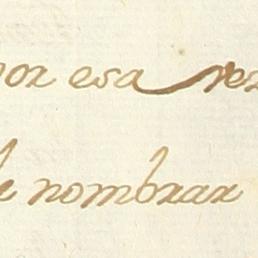 por esa vez
de nombrar